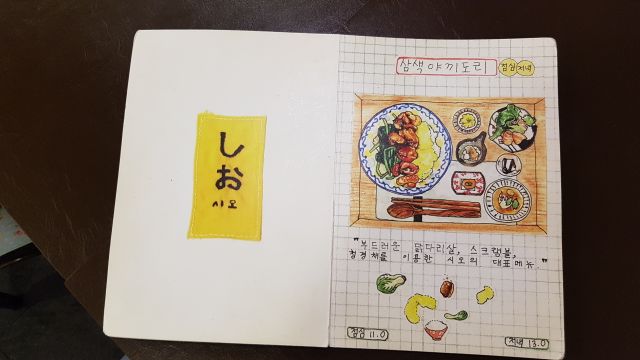 しお
시오
삼색야끼도리 점심 저녁
"부드러운 닭다리살, 스크램블,
청경채를 이용한 시오의 대표메뉴."
점심 11.0 저녁 13.0